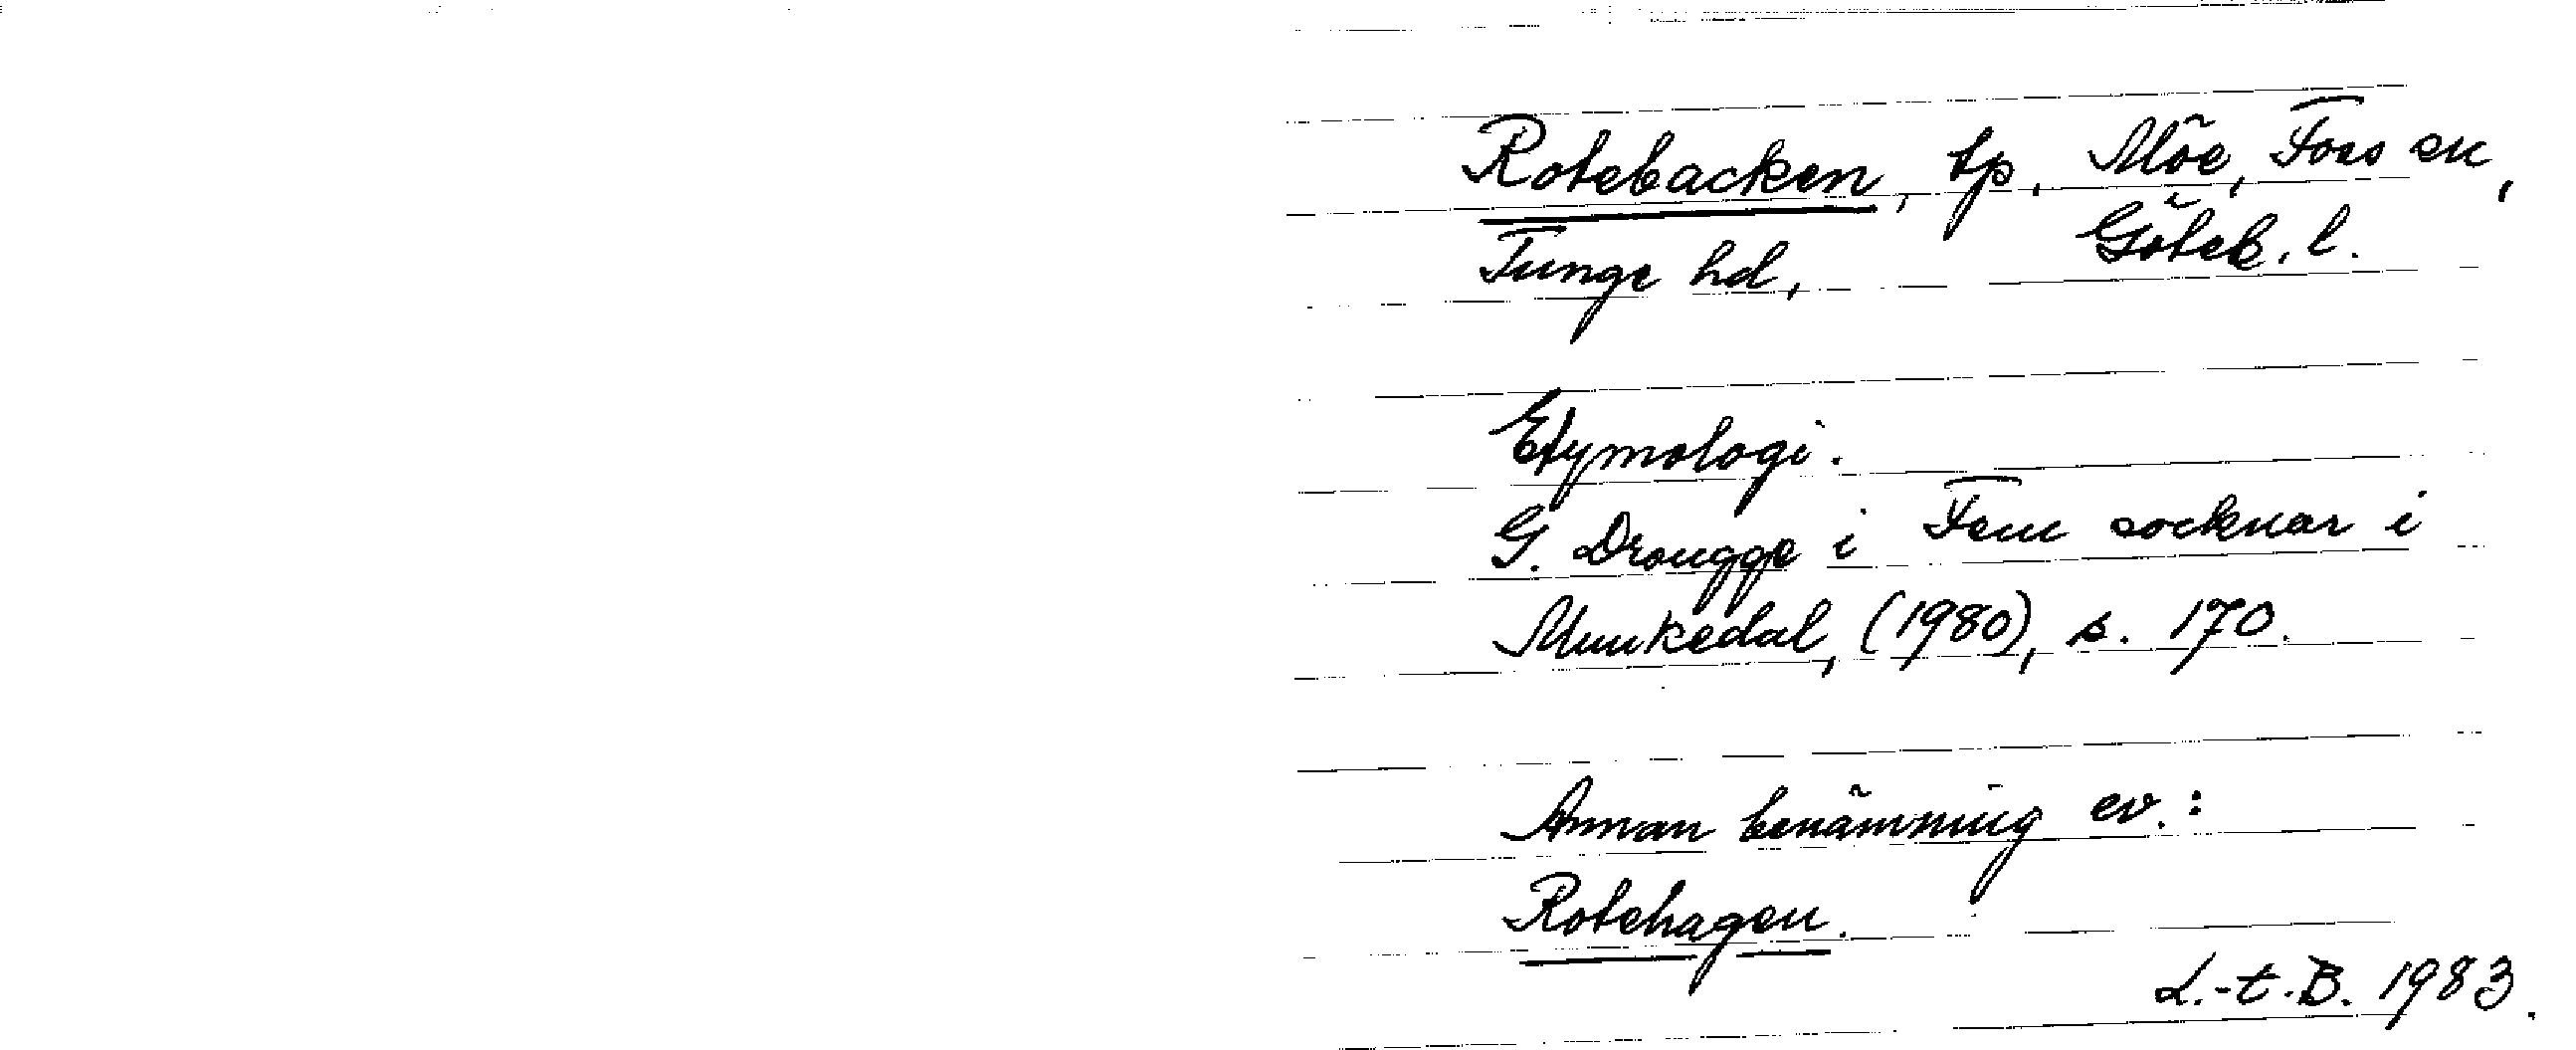 Rotebacken, tp, Möe, Foss sn,
Tunge hd, Göteb. l.
Etymologi.
G. Drougge i Fem socknar i
Munkedal, (1980), s. 170.
Annan benämning ev.:
Rotehagen.
L.-t.B. 1983.